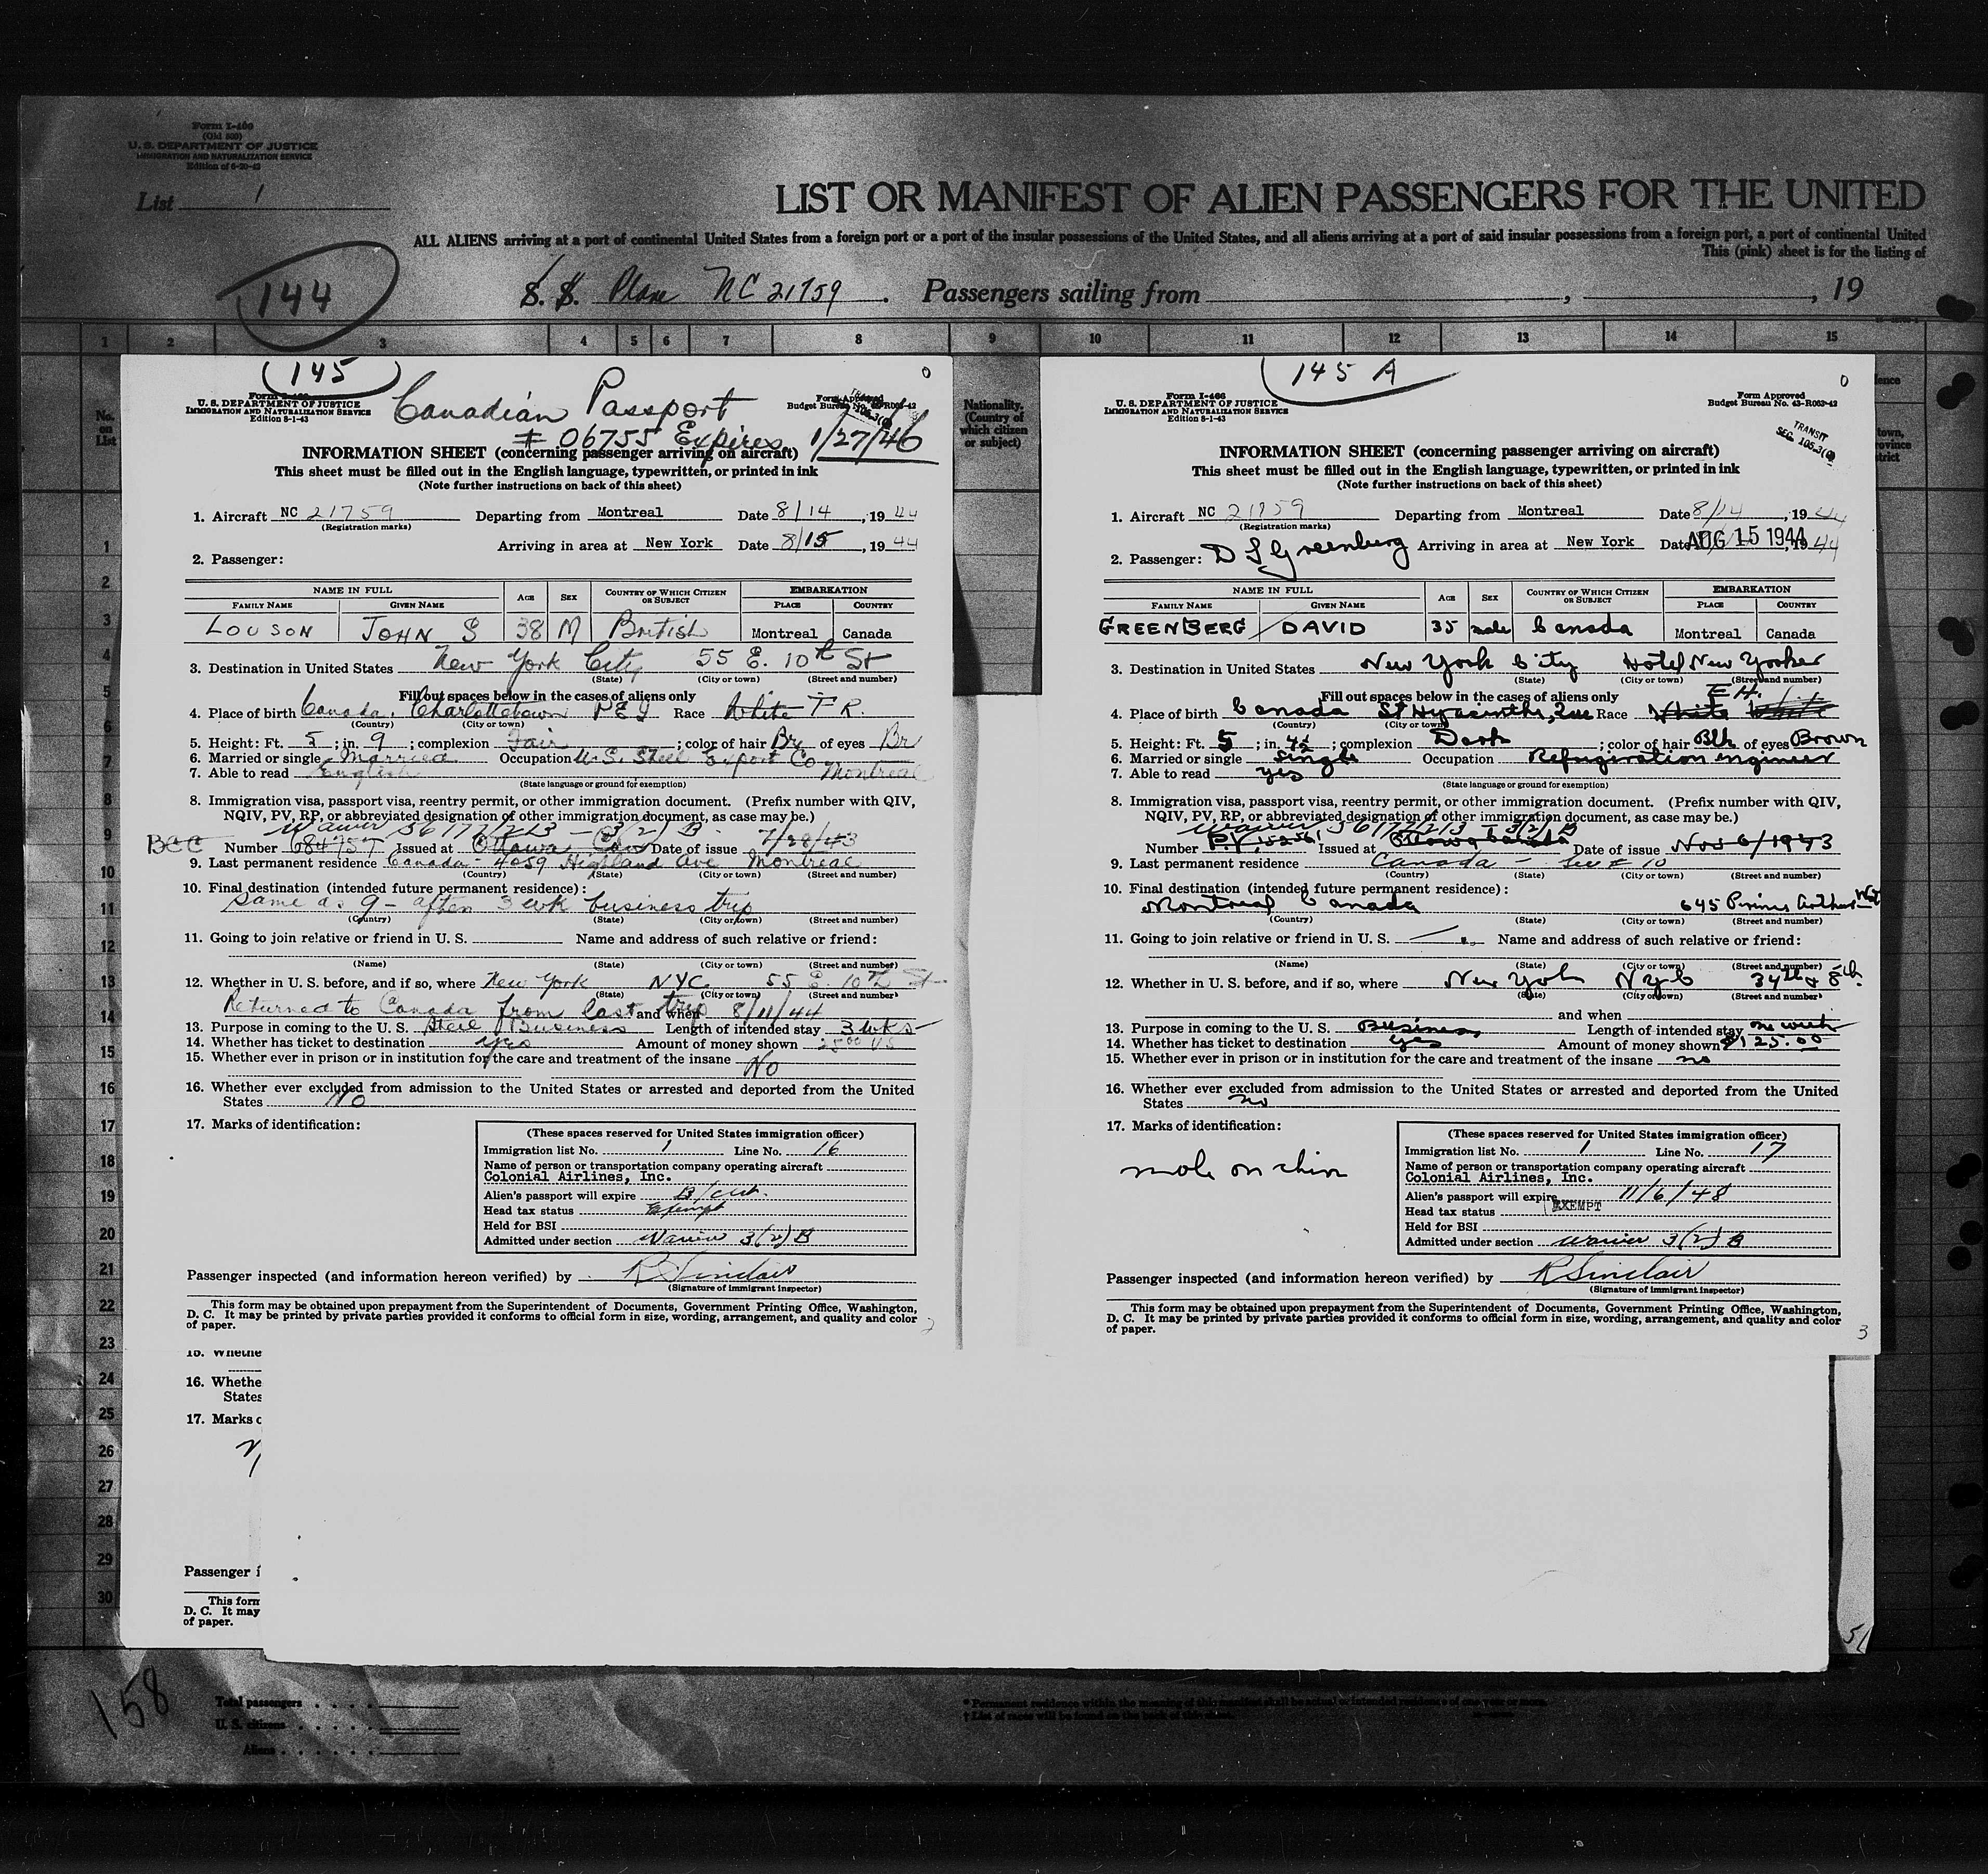 Form I-466
(Old 500)
U. S. DEPARTMENT OF JUSTICE
IMMIGRATION AND NATURALIZATION SERVICE
Edition of 6-20-42
List 1
LIST OR MANIFEST OF ALIEN PASSENGERS FOR THE UNITED
ALL ALIENS arriving at a port of continental United States from a foreign port or a port of the insular possessions of the United States, and all aliens arriving at a port of said insular possessions from a foreign port, a port of continental United
This (pink) sheet is for the listing of
144
S. S. Plane NC 21759 . Passengers sailing from , , 19
1 2 3 4 5 6 7 8 9 10 11 12 13 14 15
No. on List
Nationality. (Country of which citizen or subject)
145
Form I-466
U. S. DEPARTMENT OF JUSTICE
IMMIGRATION AND NATURALIZATION SERVICE
Edition 8-1-43
Canadian Passport
# 06755 Expires 1/27/46
Form Approved
Budget Bureau No. 43-R063-42
INFORMATION SHEET (concerning passenger arriving on aircraft)
This sheet must be filled out in the English language, typewritten, or printed in ink
(Note further instructions on back of this sheet)
1. Aircraft NC 21759 Departing from Montreal Date 8/14, 1944
(Registration marks)
Arriving in area at New York Date 8/15, 1944
2. Passenger:
NAME IN FULL AGE SEX COUNTRY OF WHICH CITIZEN OR SUBJECT EMBARKATION
FAMILY NAME GIVEN NAME PLACE COUNTRY
LOUSON JOHN S 38 M British Montreal Canada
3. Destination in United States New York City 55 E. 10th St
(State) (City or town) (Street and number)
Fill out spaces below in the cases of aliens only
4. Place of birth Canada, Charlottetown PEI Race White FR.
(Country) (City or town)
5. Height: Ft. 5; in. 9; complexion Fair; color of hair Br of eyes Br
6. Married or single Married Occupation U.S. Steel Export Co Montreal
7. Able to read English
(State language or ground for exemption)
8. Immigration visa, passport visa, reentry permit, or other immigration document. (Prefix number with QIV,
NQIV, PV, RP, or abbreviated designation of other immigration document, as case may be.)
Waiver 56177/213 - 3(2) B.
BCC Number 684757 Issued at Ottawa, Can Date of issue 7/28/43
9. Last permanent residence Canada - 4059 Highland Ave Montreal
(Country) (State) (City or town) (Street and number)
10. Final destination (intended future permanent residence):
Same as 9 - after 3 wk business trip
(Country) (State) (City or town) (Street and number)
11. Going to join relative or friend in U. S. Name and address of such relative or friend:
(Name) (State) (City or town) (Street and number)
12. Whether in U. S. before, and if so, where New York NYC 55 E. 10th St
(State) (City or town) (Street and number)
Returned to Canada from last trip and when 8/11/44
13. Purpose in coming to the U. S. Steel Business Length of intended stay 3 wks
14. Whether has ticket to destination yes Amount of money shown 25 00 US
15. Whether ever in prison or in institution for the care and treatment of the insane No
16. Whether ever excluded from admission to the United States or arrested and deported from the United
States No
17. Marks of identification:
(These spaces reserved for United States immigration officer)
Immigration list No. 1 Line No. 16
Name of person or transportation company operating aircraft
Colonial Airlines, Inc.
Alien's passport will expire
Head tax status Exempt
Held for BSI
Admitted under section Waiver 3(2) B
Passenger inspected (and information hereon verified) by R Sinclair
(Signature of immigrant inspector)
This form may be obtained upon prepayment from the Superintendent of Documents, Government Printing Office, Washington,
D. C. It may be printed by private parties provided it conforms to official form in size, wording, arrangement, and quality and color
of paper.
2
145 A
Form I-466
U. S. DEPARTMENT OF JUSTICE
IMMIGRATION AND NATURALIZATION SERVICE
Edition 8-1-43
Form Approved
Budget Bureau No. 43-R063-42
TRANSIT
SEC 105.3(
INFORMATION SHEET (concerning passenger arriving on aircraft)
This sheet must be filled out in the English language, typewritten, or printed in ink
(Note further instructions on back of this sheet)
1. Aircraft NC 21759 Departing from Montreal Date 8/14, 1944
(Registration marks)
2. Passenger: D S Greenberg Arriving in area at New York Date AUG 15 1944, 1944
NAME IN FULL AGE SEX COUNTRY OF WHICH CITIZEN OR SUBJECT EMBARKATION
FAMILY NAME GIVEN NAME PLACE COUNTRY
GREENBERG / DAVID 35 male Canada Montreal Canada
3. Destination in United States New York City Hotel New Yorker
(State) (City or town) (Street and number)
Fill out spaces below in the cases of aliens only E H.
4. Place of birth Canada St Hyacinthe, Que Race White White
(Country) (City or town)
5. Height: Ft. 5; in. 4½; complexion Dark; color of hair Blk of eyes Brown
6. Married or single Single Occupation Refrigeration engineer
7. Able to read yes
(State language or ground for exemption)
8. Immigration visa, passport visa, reentry permit, or other immigration document. (Prefix number with QIV,
NQIV, PV, RP, or abbreviated designation of other immigration document, as case may be.)
Waiver 56177/213 - 3(2) B
Number Issued at Ottawa Canada Date of issue Nov 6/1943
9. Last permanent residence Canada - See # 10
(Country) (State) (City or town) (Street and number)
10. Final destination (intended future permanent residence):
Montreal Canada 645 Prince Arthur West
(Country) (State) (City or town) (Street and number)
11. Going to join relative or friend in U. S. Name and address of such relative or friend:
(Name) (State) (City or town) (Street and number)
12. Whether in U. S. before, and if so, where New York NYC 34th & 8th.
(State) (City or town) (Street and number)
and when
13. Purpose in coming to the U. S. Business Length of intended stay one week
14. Whether has ticket to destination yes Amount of money shown $125.00
15. Whether ever in prison or in institution for the care and treatment of the insane no
16. Whether ever excluded from admission to the United States or arrested and deported from the United
States no
17. Marks of identification:
mole on chin
(These spaces reserved for United States immigration officer)
Immigration list No. 1 Line No. 17
Name of person or transportation company operating aircraft
Colonial Airlines, Inc.
Alien's passport will expire 11/6/48
Head tax status EXEMPT
Held for BSI
Admitted under section Waiver 3(2) B
Passenger inspected (and information hereon verified) by R Sinclair
(Signature of immigrant inspector)
This form may be obtained upon prepayment from the Superintendent of Documents, Government Printing Office, Washington,
D. C. It may be printed by private parties provided it conforms to official form in size, wording, arrangement, and quality and color
of paper.
3
1
2
3
4
5
6
7
8
9
10
11
12
13
14
15
16
17
18
19
20
21
22
23
24
25
26
27
28
29
30
15. Whethe
16. Whethe
States
17. Marks o
Passenger i
This form
D. C. It may
of paper.
51
158
Total passengers
U. S. citizens
Aliens
* Permanent residence within the meaning of this manifest shall be actual or intended residence of one year or more.
† List of races will be found on the back of this sheet.